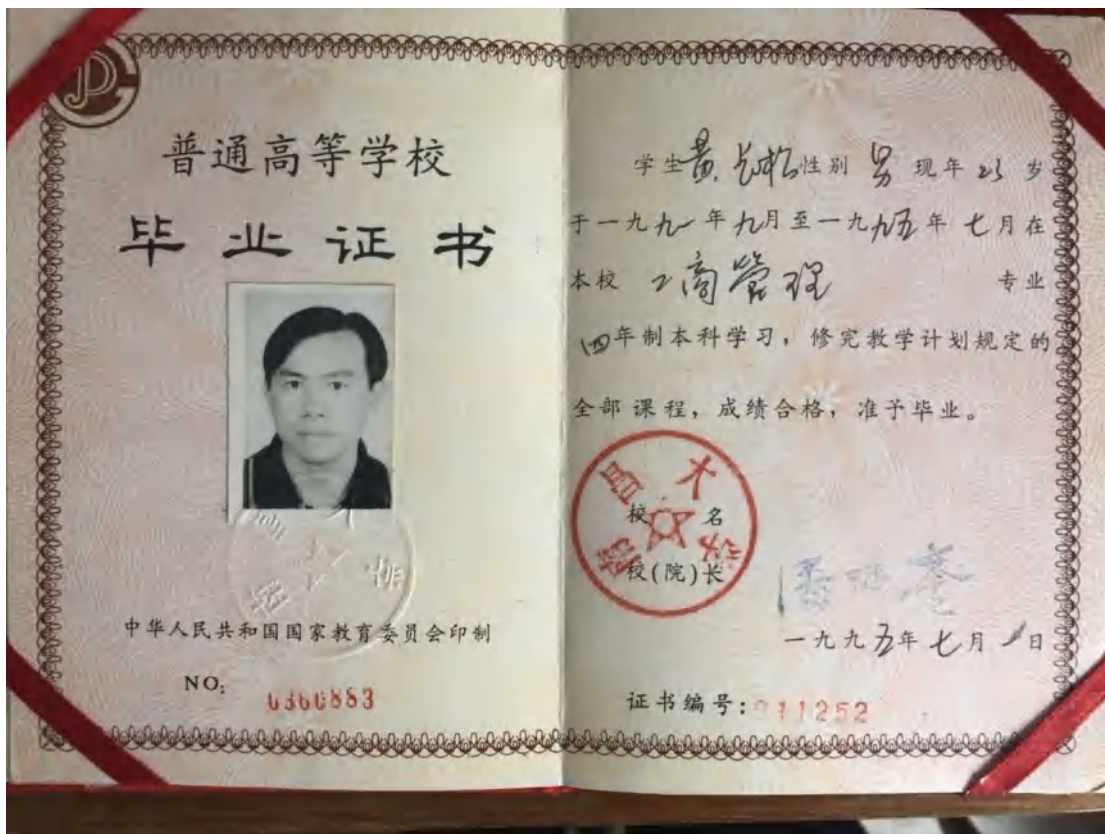 普通高等学校
毕业证书
中华人民共和国国家教育委员会印制
NO: 0360883
学生黄长松性别 男 现年 23 岁
于一九九一年九月至一九九五年七月在
本校 工商管理 专业
四年制本科学习，修完教学计划规定的
全部课程，成绩合格，准予毕业。
南昌大学
校名
校(院)长
一九九五年七月1日
证书编号:911252